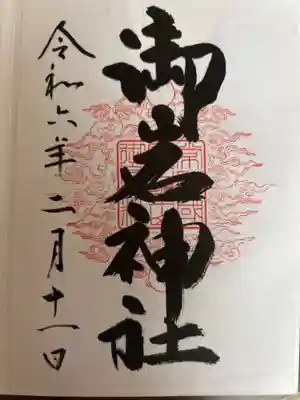 御岩神社
令和六年二月十一日